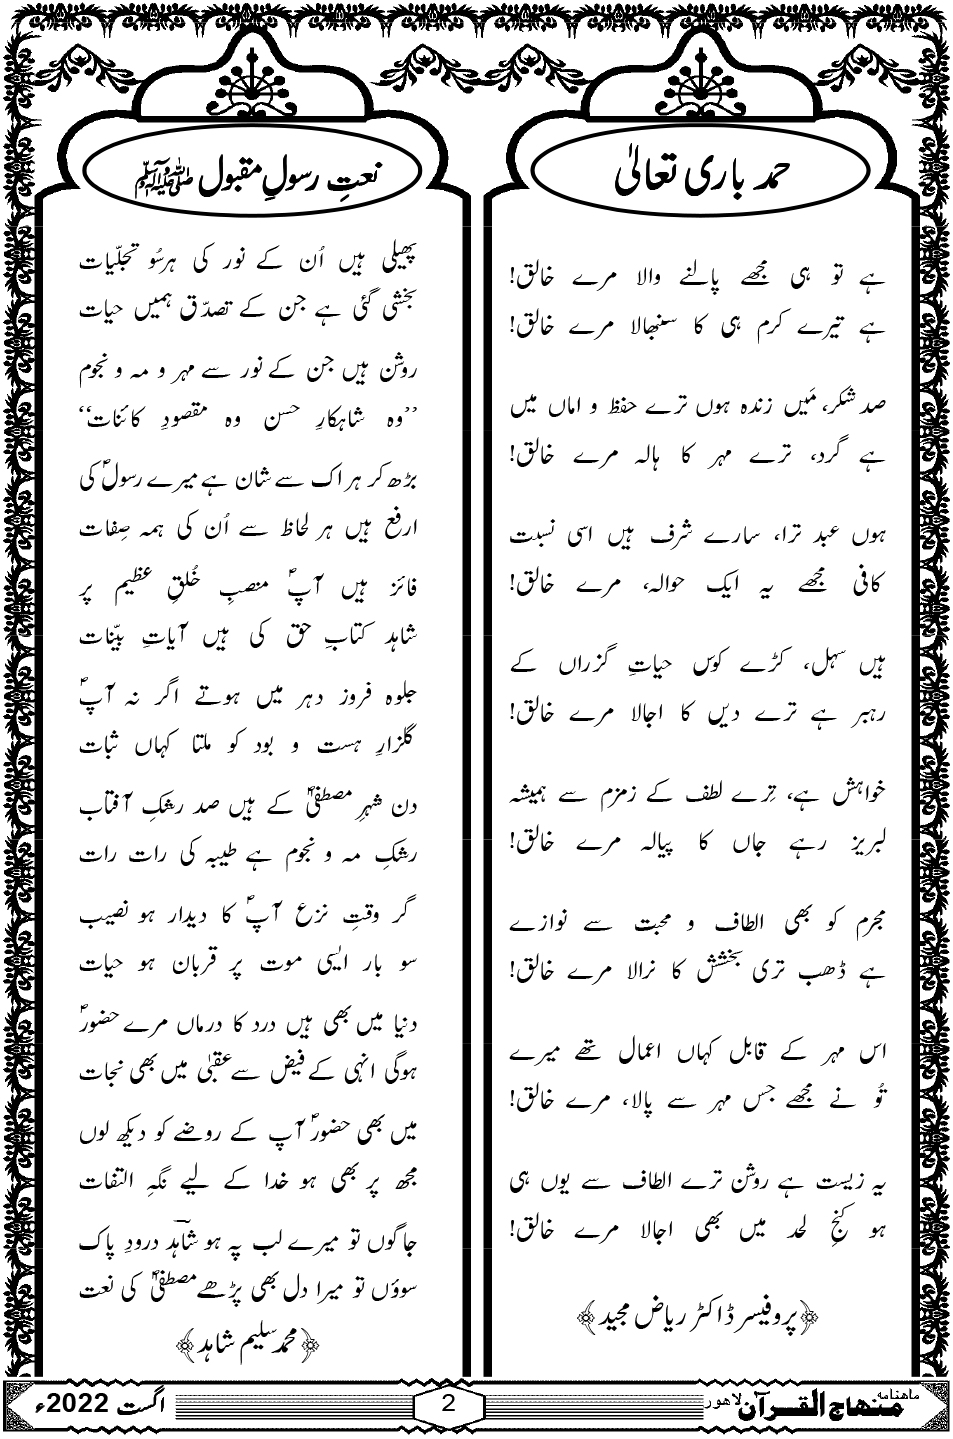 حمد باری تعالیٰ
ہے تو ہی مجھے پالنے والا مرے خالق!
ہے تیرے کرم ہی کا سنبھالا مرے خالق!
صد شکر، مَیں زندہ ہوں ترے حفظ و اماں میں
ہے گرد، ترے مہر کا ہالہ مرے خالق!
ہوں عبد ترا، سارے شرف ہیں اسی نسبت
کافی مجھے یہ ایک حوالہ، مرے خالق!
ہیں سہل، کڑے کوس حیاتِ گزراں کے
رہبر ہے ترے دیں کا اجالا مرے خالق!
خواہش ہے، تِرے لطف کے زمزم سے ہمیشہ
لبریز رہے جاں کا پیالہ مرے خالق!
مجرم کو بھی الطاف و محبت سے نوازے
ہے ڈھب تری بخشش کا نرالا مرے خالق!
اس مہر کے قابل کہاں اعمال تھے میرے
تُو نے مجھے جس مہر سے پالا، مرے خالق!
یہ زیست ہے روشن ترے الطاف سے یوں ہی
ہو کنجِ لحد میں بھی اجالا مرے خالق!
﴿پروفیسر ڈاکٹر ریاض مجید﴾
نعتِ رسولِ مقبول ﷺ
پھیلی ہیں اُن کے نور کی ہرسُو تجلّیات
بخشی گئی ہے جن کے تصدّق ہمیں حیات
روشن ہیں جن کے نور سے مہر و مہ و نجوم
’’وہ شاہکارِ حسن وہ مقصودِ کائنات‘‘
بڑھ کر ہر اک سے شان ہے میرے رسولؐ کی
ارفع ہیں ہر لحاظ سے اُن کی ہمہ صِفات
فائز ہیں آپؐ منصبِ خُلقِ عظیم پر
شاہد کتابِ حق کی ہیں آیاتِ بیّنات
جلوہ فروز دہر میں ہوتے اگر نہ آپؐ
گلزارِ ہست و بود کو ملتا کہاں ثبات
دن شہرِ مصطفیٰؐ کے ہیں صد رشکِ آفتاب
رشکِ مہ و نجوم ہے طیبہ کی رات رات
گر وقتِ نزع آپؐ کا دیدار ہو نصیب
سو بار ایسی موت پر قربان ہو حیات
دنیا میں بھی ہیں درد کا درماں مرے حضورؐ
ہوگی انہی کے فیض سے عقبٰی میں بھی نجات
میں بھی حضورؐ آپ کے روضے کو دیکھ لوں
مجھ پر بھی ہو خدا کے لیے نگہِ التفات
جاگوں تو میرے لب پہ ہو شاہدؔ درودِ پاک
سوؤں تو میرا دل بھی پڑھے مصطفیٰؐ کی نعت
﴿محمد سلیم شاہد﴾
ماهنامہ منهاج القرآن لاهور 2 اگست 2022ء